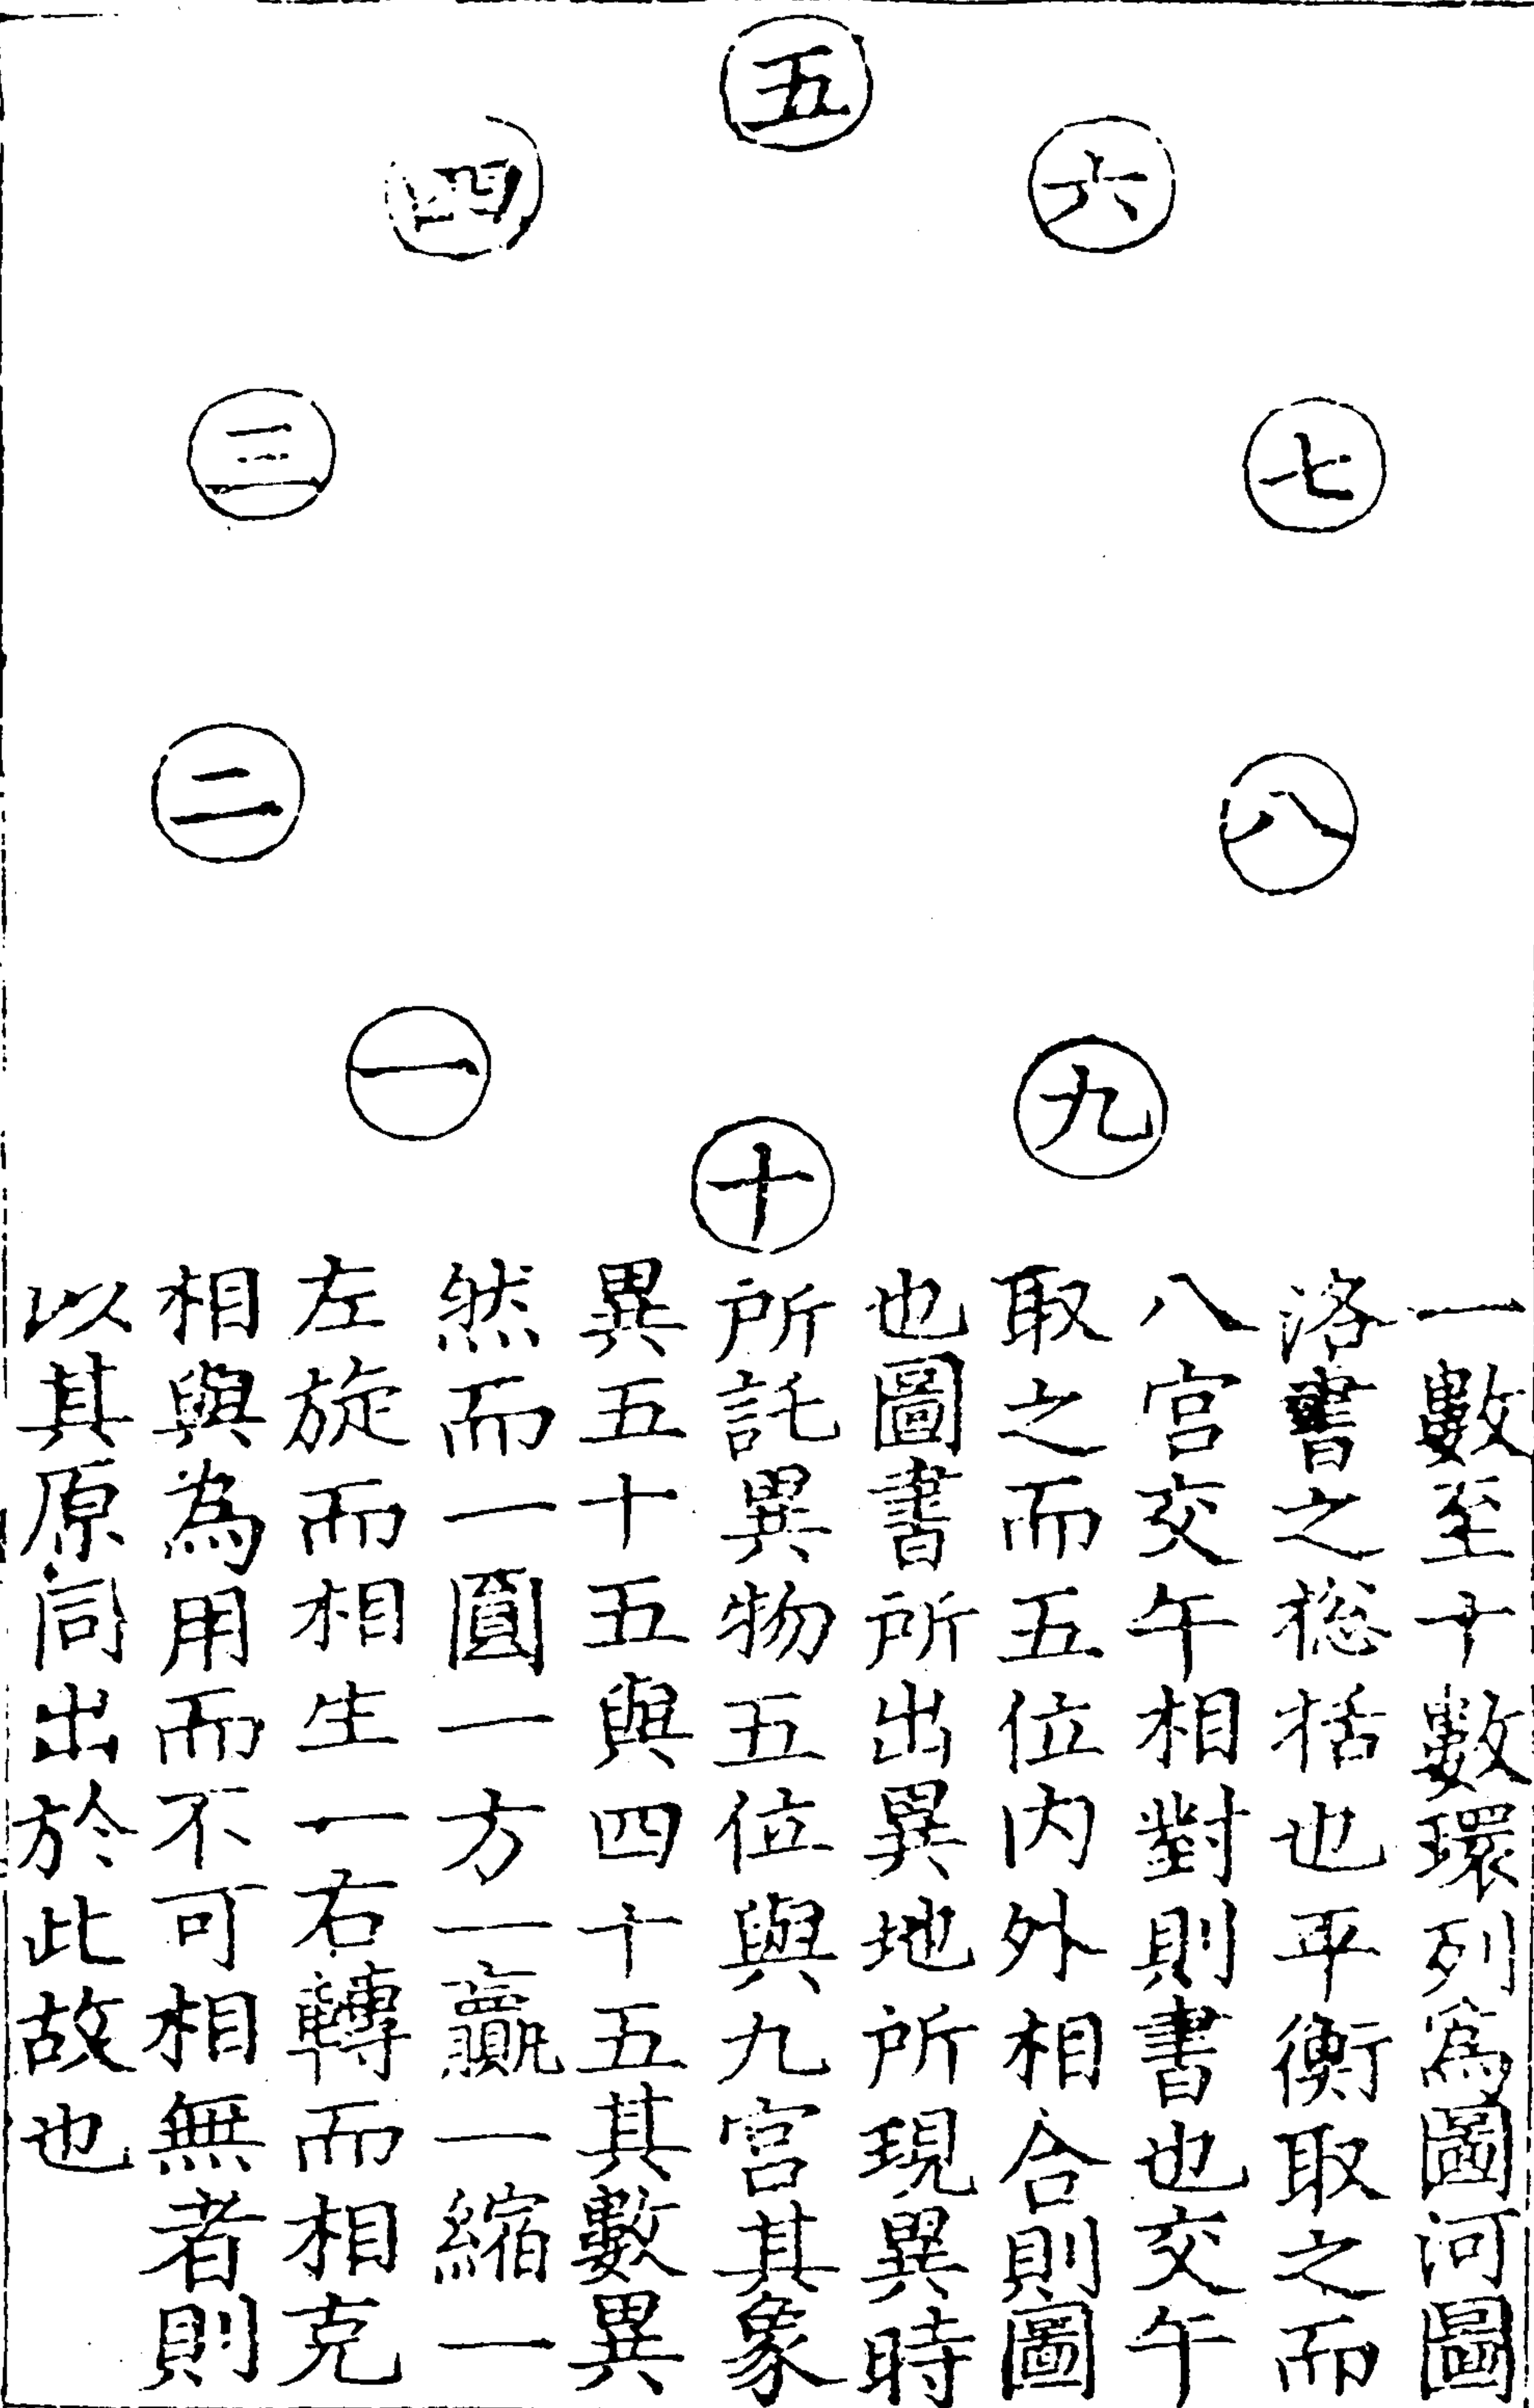 五
六
四
七
三
八
二
九
一
十
一數至十數環列爲圖河圖
洛書之總括也平衡取之而
八宮交午相對則書也交午
取之而五位内外相合則圖
也圖書所出異地所現異時
所託異物五位與九宮其象
異五十五與四十五其數異
然而一圓一方一贏一縮一
左旋而相生一右轉而相克
相與為用而不可相無者則
以其原同出於此故也